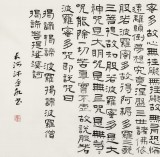 蜜多故心無罣礙無罣礙故無有恐怖遠
離顛倒夢想究竟涅槃三世諸佛依
般若波羅蜜多故得阿耨多羅三藐三
菩提故知般若波羅蜜多是大
神咒是大明咒是無上咒是無等等
咒能除一切苦真實不虛故說般若
波羅蜜多咒即說咒曰
揭諦揭諦 波羅揭諦 波羅僧
揭諦菩提薩婆訶